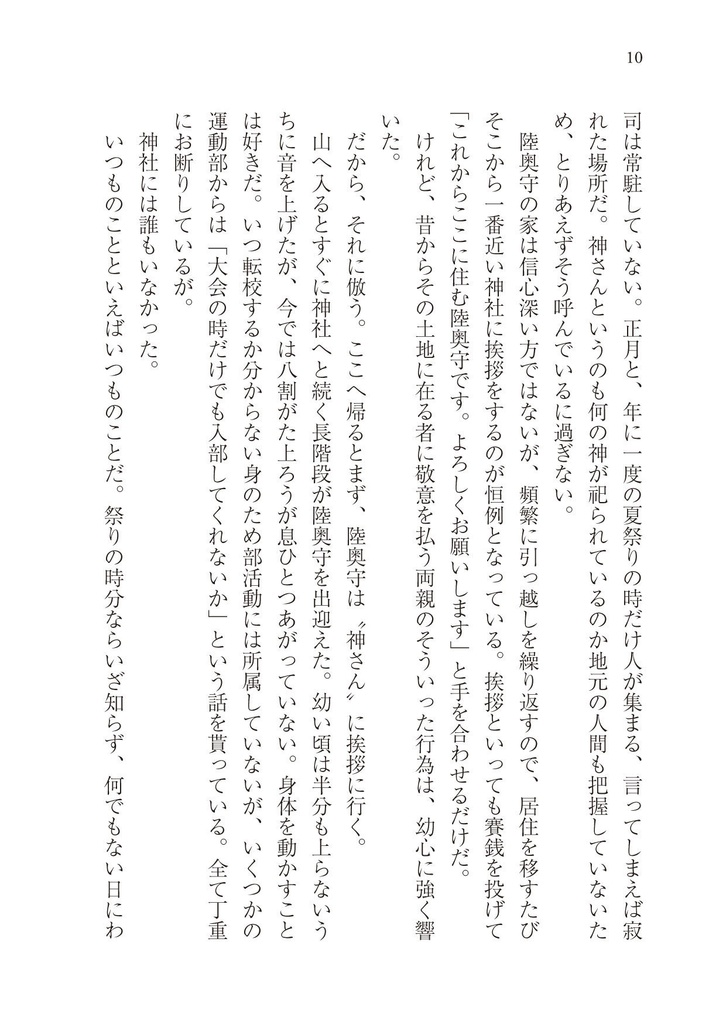 10
司は常駐していない。正月と、年に一度の夏祭りの時だけ人が集まる、言ってしまえば寂
れた場所だ。神さんというのも何の神が祀られているのか地元の人間も把握していないた
め、とりあえずそう呼んでいるに過ぎない。
陸奥守の家は信心深い方ではないが、頻繁に引っ越しを繰り返すので、居住を移すたび
そこから一番近い神社に挨拶をするのが恒例となっている。挨拶といっても賽銭を投げて
「これからここに住む陸奥守です。よろしくお願いします」と手を合わせるだけだ。
けれど、昔からその土地に在る者に敬意を払う両親のそういった行為は、幼心に強く響
いた。
だから、それに倣う。ここへ帰るとまず、陸奥守は〝神さん〟に挨拶に行く。
山へ入るとすぐに神社へと続く長階段が陸奥守を出迎えた。幼い頃は半分も上らないう
ちに音を上げたが、今では八割がた上ろうが息ひとつあがっていない。身体を動かすこと
は好きだ。いつ転校するか分からない身のため部活動には所属していないが、いくつかの
運動部からは「大会の時だけでも入部してくれないか」という話を貰っている。全て丁重
にお断りしているが。
神社には誰もいなかった。
いつものことといえばいつものことだ。祭りの時分ならいざ知らず、何でもない日にわ